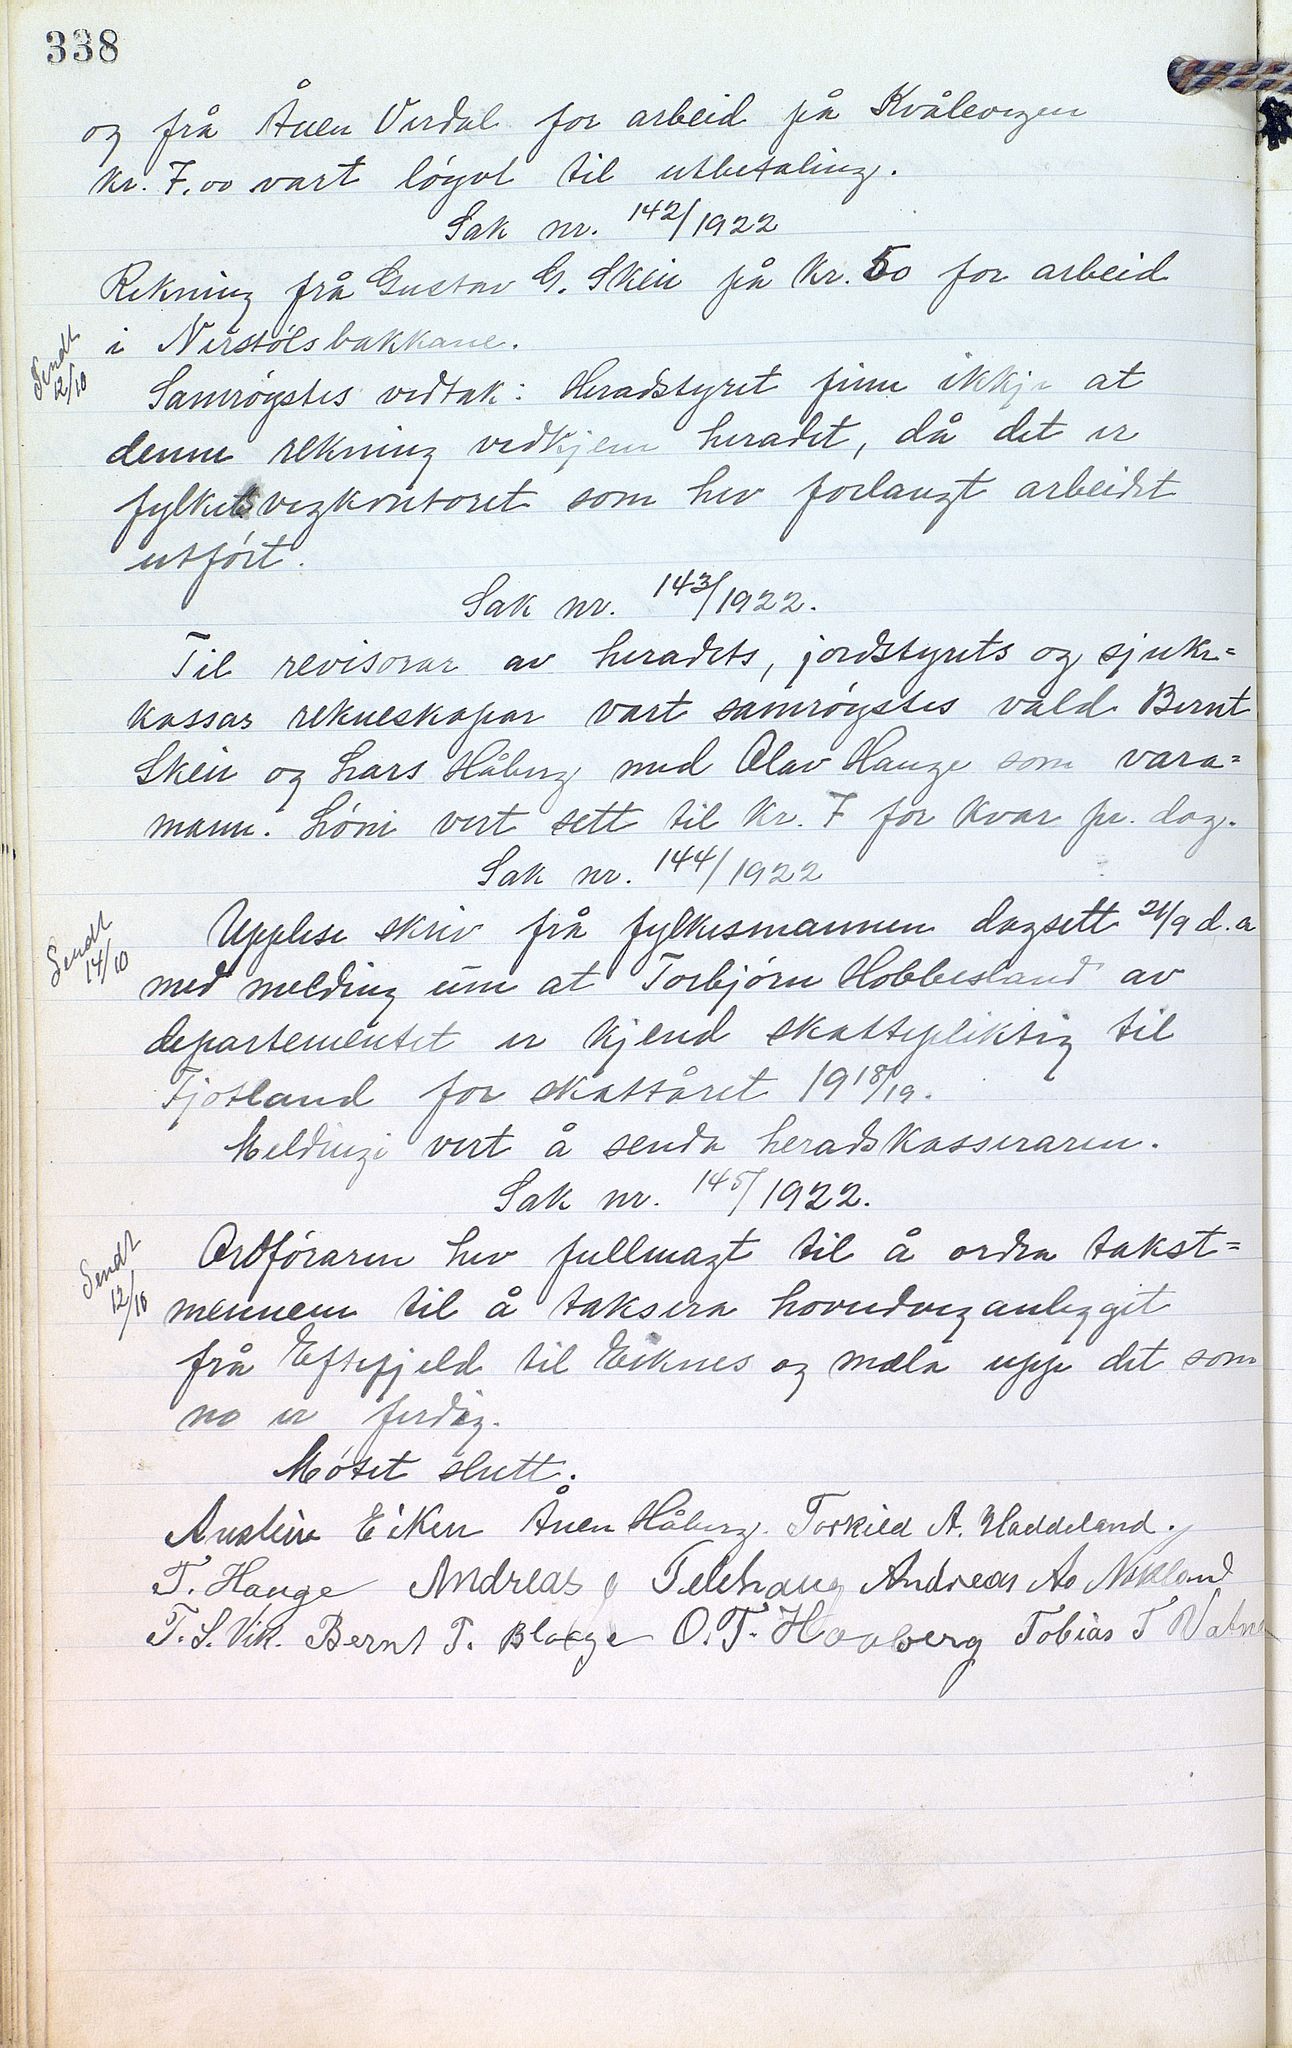 338
og frå Ånen Verdal for arbeid på Kvålevegen
kr. 7.00 vart løgvt til utbetaling.
Sak nr. 142/1922
Rekning frå Gustav G. Skeie på kr. 50 for arbeid
i Nerstølsbakkane.
Sendt
12/10
Samrøystes vedtak: Heradstyret finn ikkje at
denne rekning vedkjem heradet, då det er
fylkets vegkontoret som hev forlangt arbeidet
utført.
Sak nr. 143/1922.
Til revisorar av heradets, jordstyrets og sjuke=
kassas rekneskapar vart samrøystes vald Bernt
Skeie og Lars Håberg med Olav Hauge som vara=
mann. Løni vert sett til kr. 7 for kvar pr. dag.
Sak nr. 144/1922
Sendt
14/10
Upplese skriv frå fylkesmannen dagsett 21/9 d.a
med melding um at Torbjørn Hobbesland av
departementet er kjend skattepliktig til
Fjotland for skattåret 1918/19.
Meldingi vert å senda heradskasseraren.
Sak nr. 145/1922.
Sendt
12/10
Ordføraren hev fullmagt til å ordra takst=
mennene til å taksera hovudveganlegget
frå Eftefjeld til Eiknes og mæla upp det som
no er ferdig.
Møtet slutt.
Anstein Eiken Ånen Håberg. Torkild A. Haddeland.
T. Hauge Andreas Telhaug Andreas Aa Nokland
T. S. Vik. Bernt T. Blarge O. T. Hovberg Tobias T Vatne